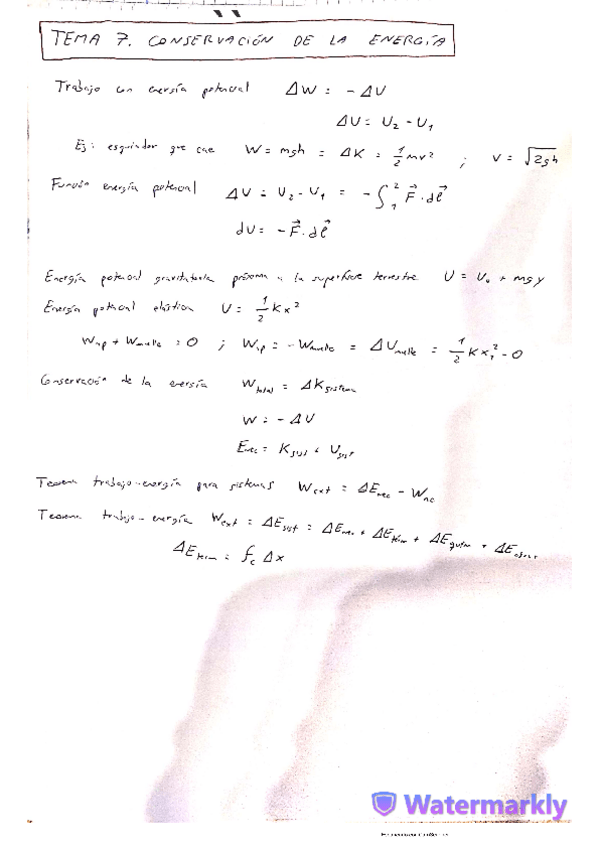 TEMA 7. CONSERVACIÓN DE LA ENERGÍA
Trabajo con energía potencial ΔW = -ΔU
ΔU = U₂ - U₁
Ej: esquiador que cae W = mgh = ΔK = 1/2 mv² ; v = √2gh
Función energía potencial ΔU = U₂ - U₁ = -∫₁² F⃗ · dℓ⃗
dU = -F⃗ · dℓ⃗
Energía potencial gravitatoria próxima a la superficie terrestre U = U₀ + mgy
Energía potencial elástica U = 1/2 Kx²
W_ap + W_muelle = 0 ; W_ap = -W_muelle = ΔU_muelle = 1/2 Kx₁² - 0
Conservación de la energía W_total = ΔK_sistema
W = -ΔU
E_mec = K_sist + U_sist
Teorema trabajo-energía para sistemas W_ext = ΔE_mec - W_nc
Teorema trabajo-energía W_ext = ΔE_sist = ΔE_mec + ΔE_térm + ΔE_quím + ΔE
ΔE_term = f_c Δx
Watermarkly